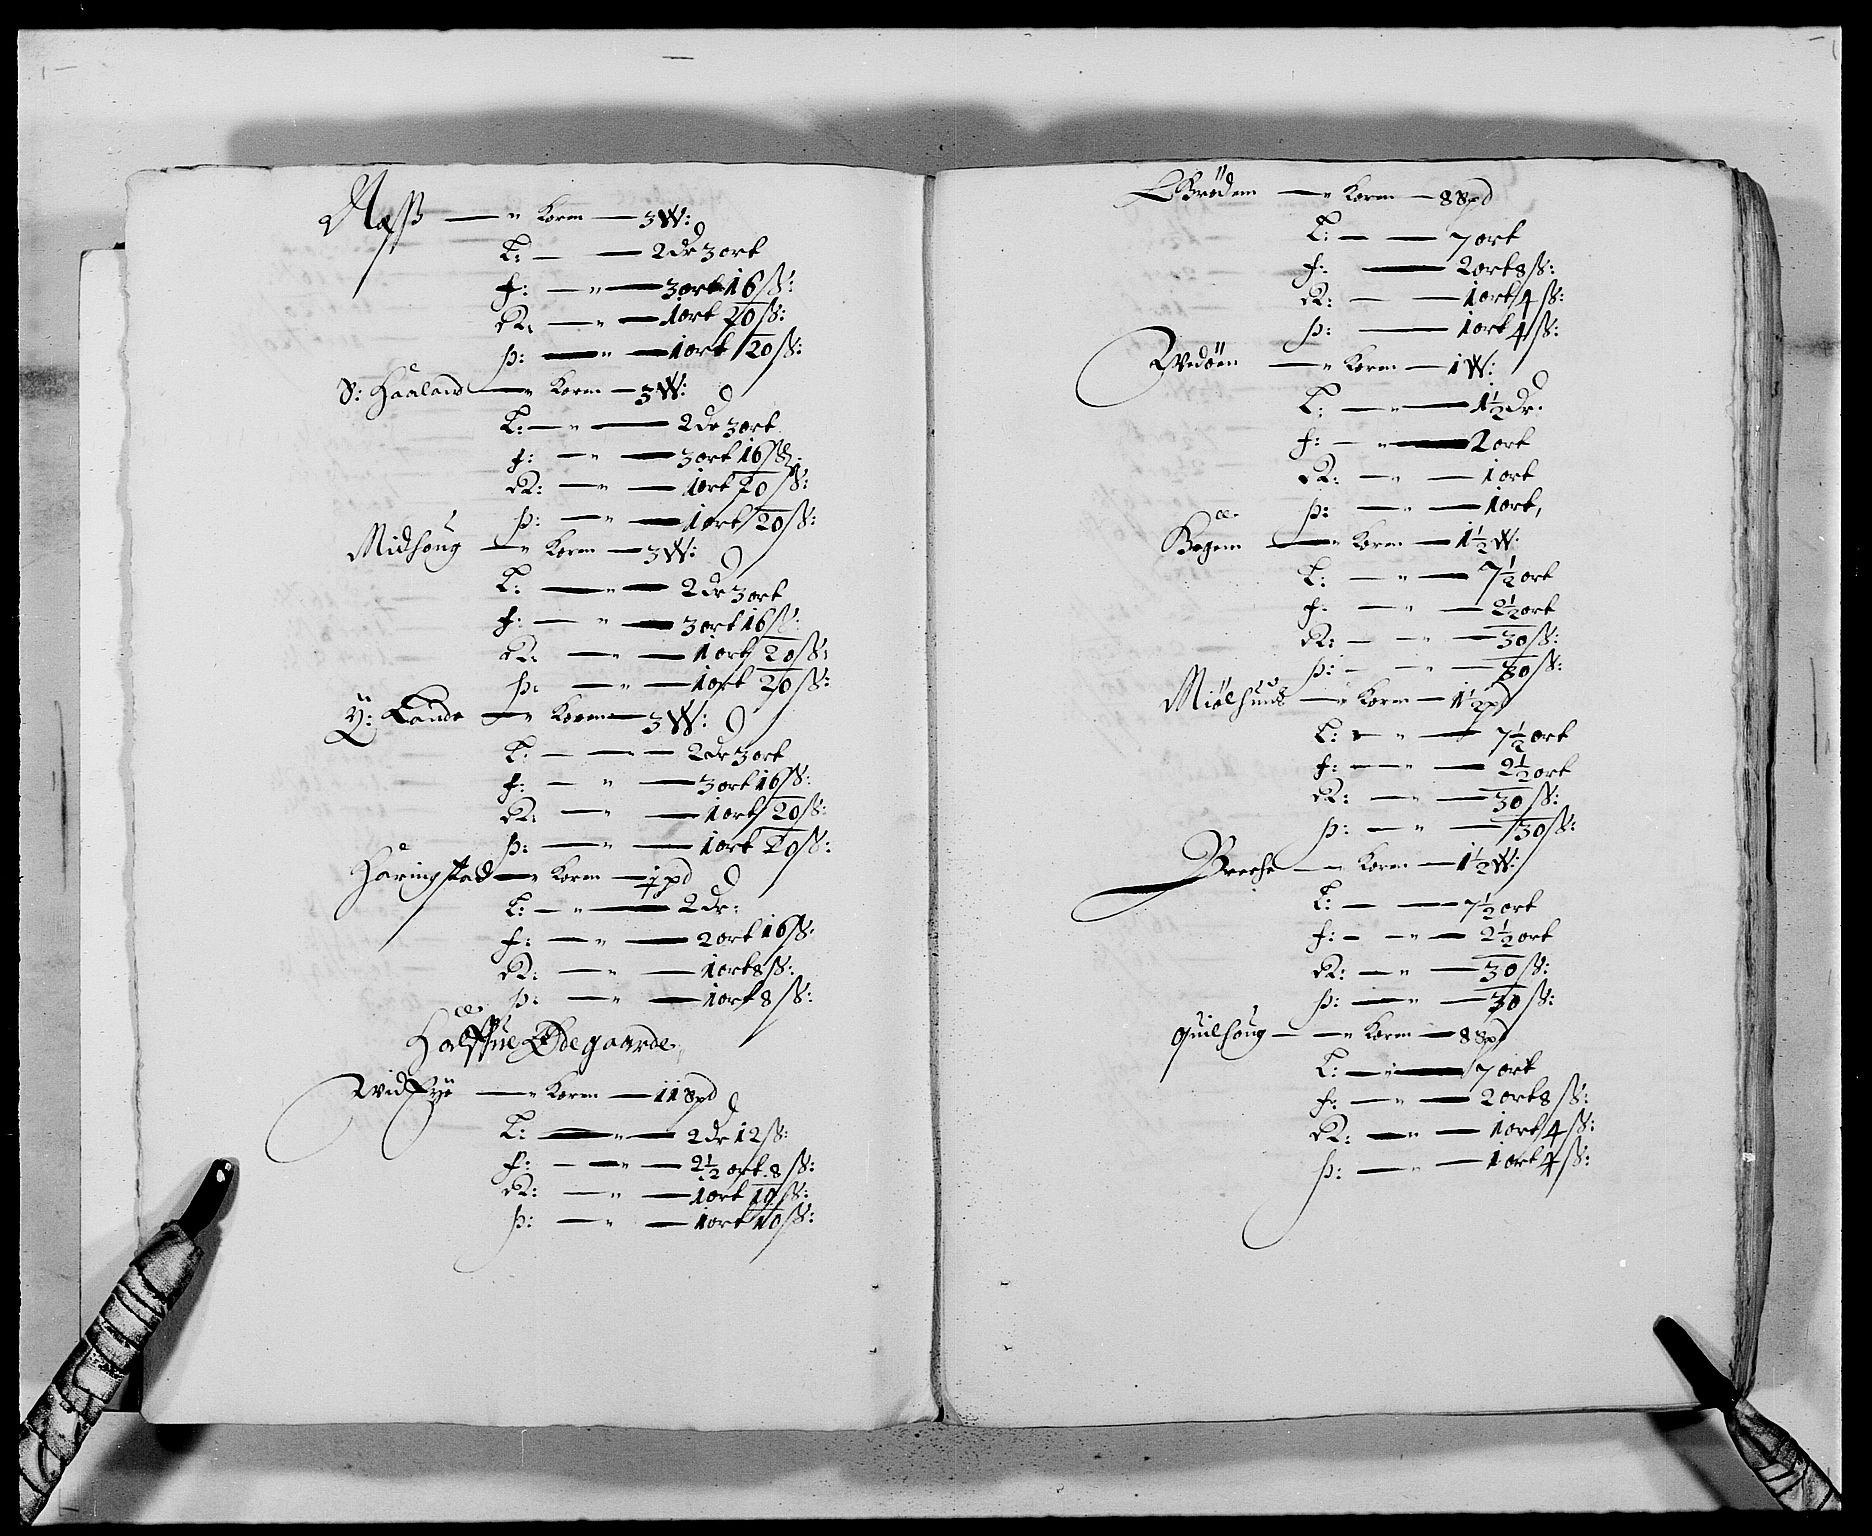 Næss — " Korn — 3 W:
L: — — 2 dr 3 ort
f: — " — 3 ort 16 ß:
R: — " — 1 ort 20 ß:
þ: — " — 1 ort 20 ß:
S: Haaland — " Korn — 3 W:
L: — " — 2 dr 3 ort
f: — " — 3 ort 16 ß:
R: — " — 1 ort 20 ß:
þ: — " — 1 ort 20 ß:
Midhoug — " Korn — 3 W:
L: — " — 2 dr 3 ort
f: — " — 3 ort 16 ß:
R: — " — 1 ort 20 ß:
þ: — " — 1 ort 20 ß:
Y: Lande — " Korn — 3 W:
L: — — — 2 dr 3 ort
f: — " — 3 ort 16 ß:
R: — " — 1 ort 20 ß:
þ: — " — 1 ort 20 ß:
Haringstad — " Korn — 1 pd
L: — " — 2 dr:
f: — " — 2 ort 16 ß:
R: — " — 1 ort 8 ß:
þ: — " — 1 ort 8 ß:
Halffue Ødegaarde
Widßye — " Korn — 11 8pd
L: — " — 2 dr 12 ß:
f: — " — 2½ ort 8 ß:
R: — " — 1 ort 10 ß:
þ: — " — 1 ort 10 ß:
Brödem — " Korn — 8 8pd
L: — — 7 ort
f: — 2 ort 8 ß:
R: — — 1 ort 4 ß:
þ: — 1 ort 4 ß:
Wedöen — " Korn — 1 W:
L: — " — 1½ dr.
f: — " — 2 ort
R: — " — 1 ort
þ: — " — 1 ort,
Bogem — " Korn — 1½ W:
L: — " — 7½ ort
f: — " — 2½ ort
R: — " — 30 ß:
þ: — " — 30 ß:
Miölhuus — " Korn — 1½ pd
L: — " — 7½ ort
f: — " — 2½ ort
R: — " — 30 ß:
þ: — " — 30 ß:
Breche — " Korn — 1½ W:
L: — — 7½ ort
f: — " — 2½ ort
R: — " — 30 ß:
þ: — " — 30 ß:
Quilhoug — — " Korn — 8 8pd
L: — " — 7 ort
f: — " — 2 ort 8 ß:
R: — " — 1 ort 4 ß:
þ: — " — 1 ort 4 ß: